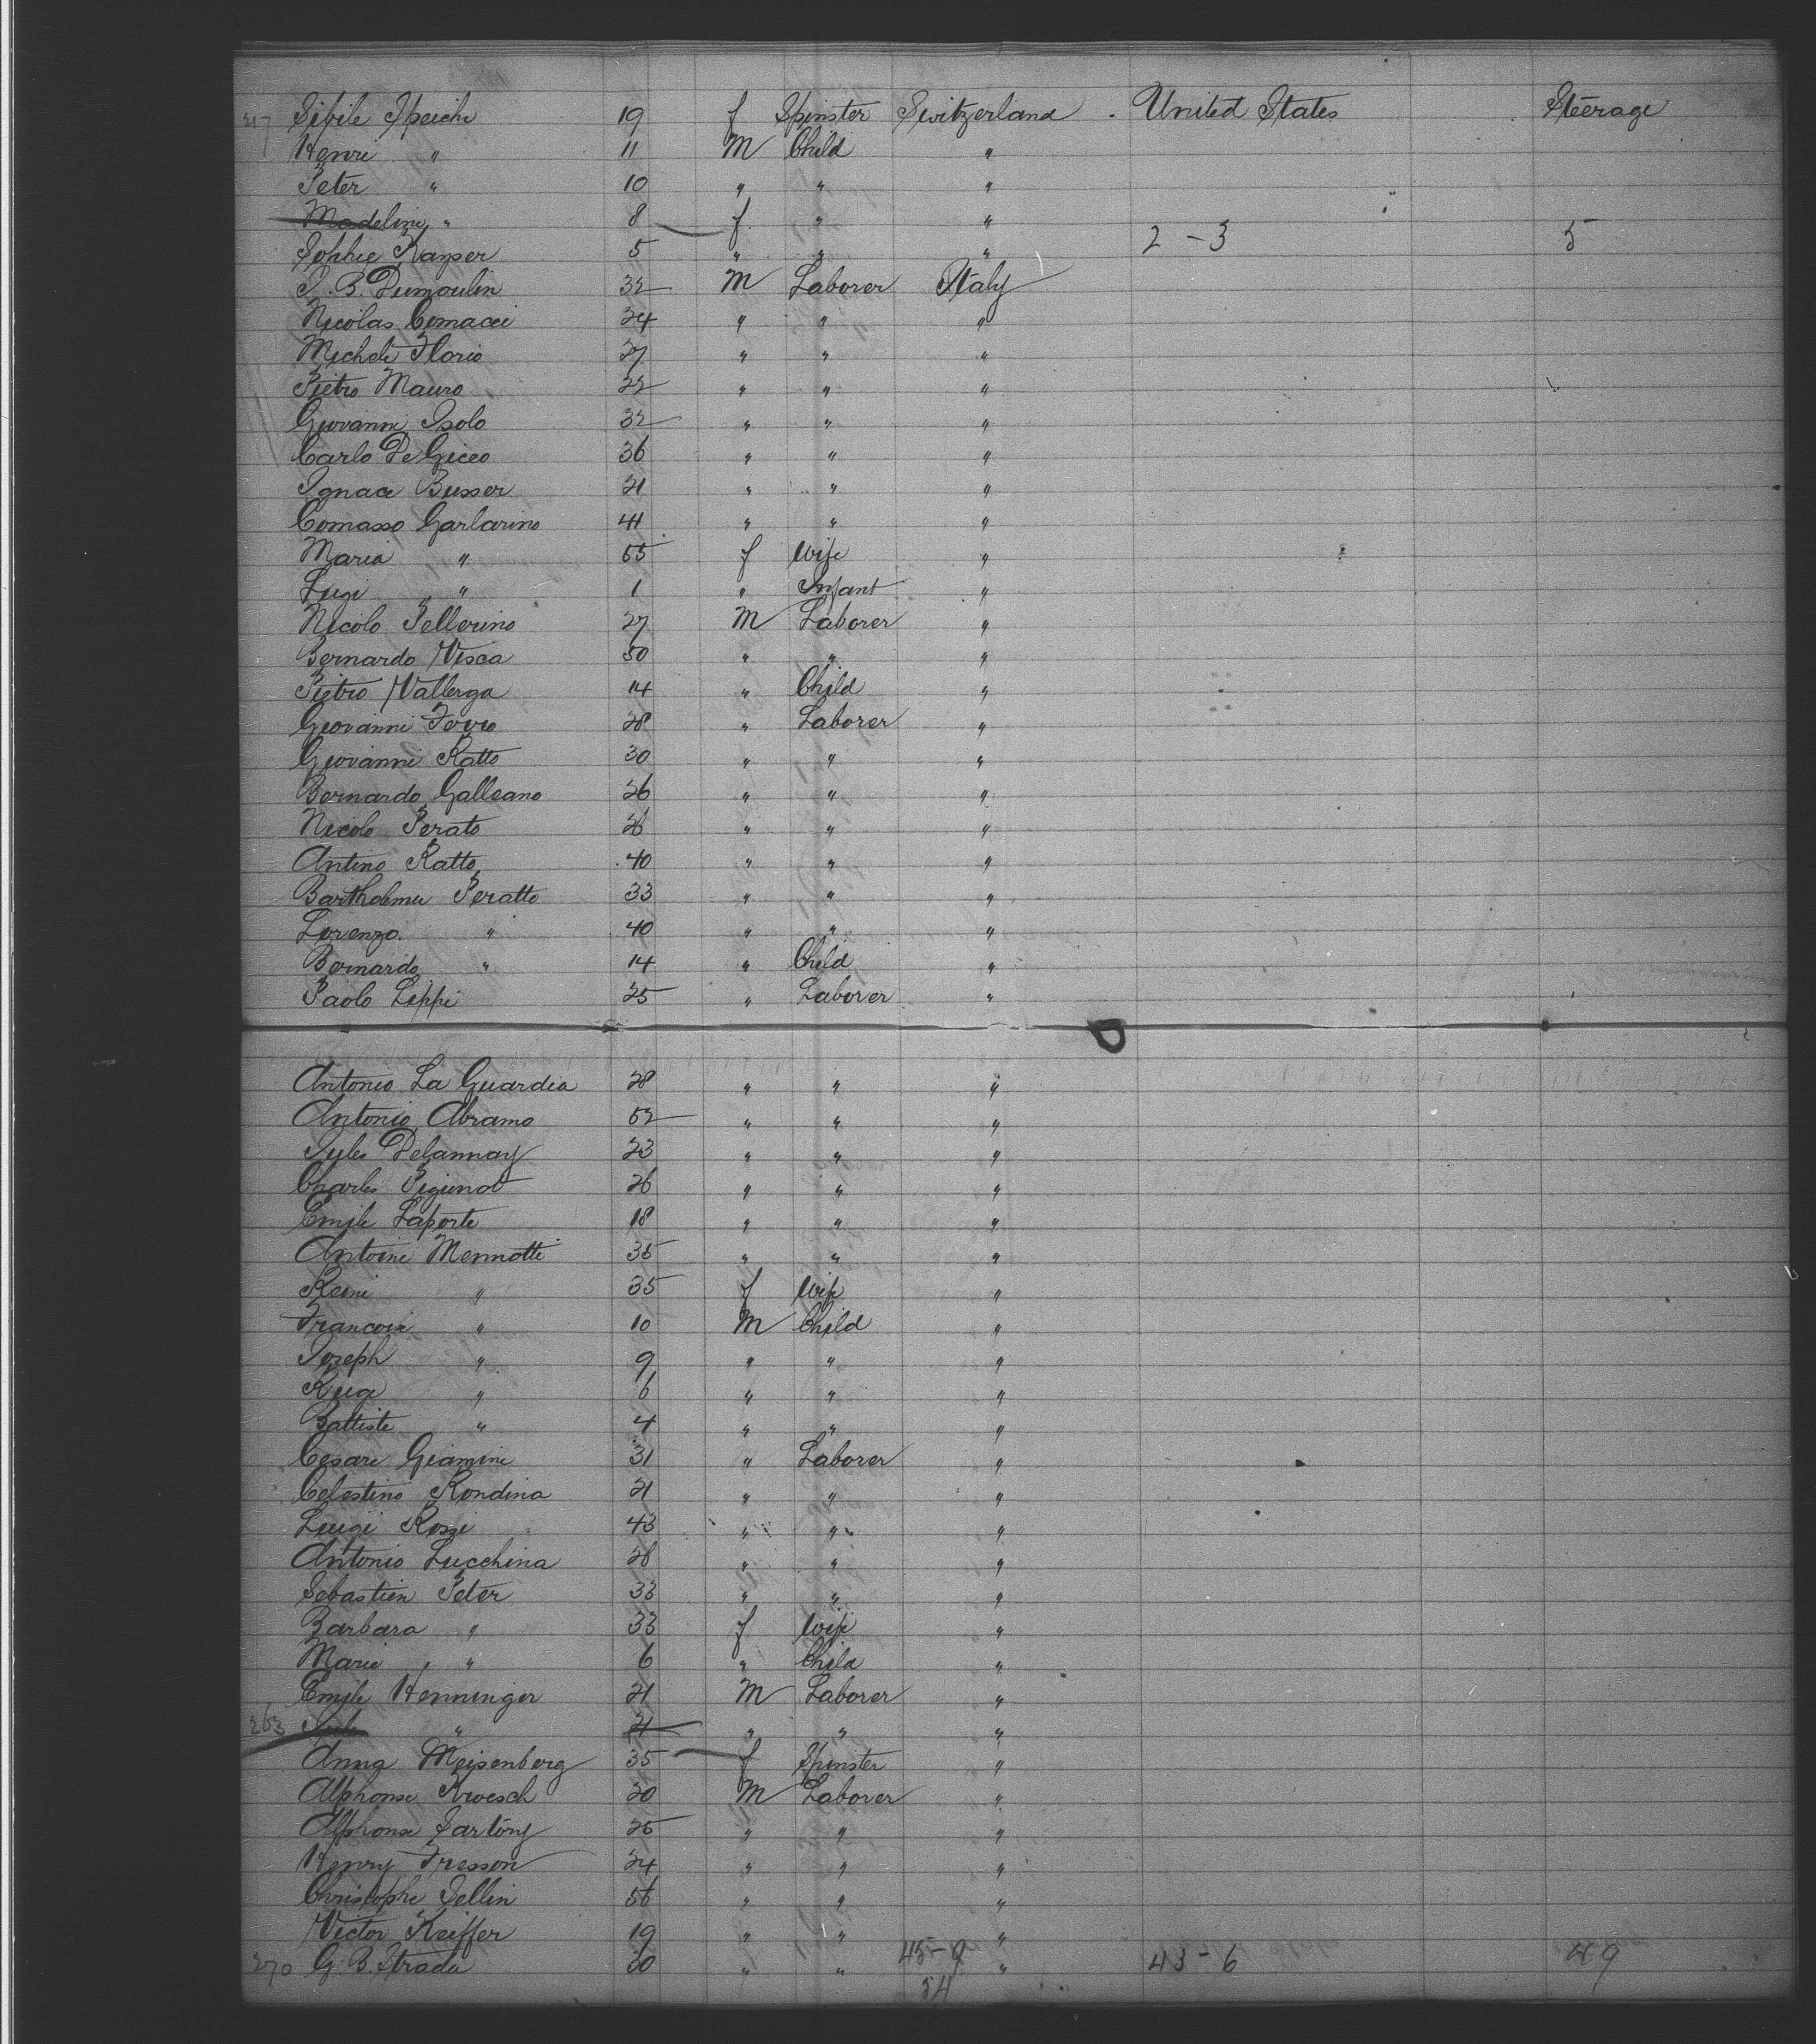 217 Sibile Speichi 19 f Spinster Switzerland United States Steerage
Henri " 11 M Child "
Peter " 10 " " "
Madeline " 8 f " "
Sophie Kayser 5 " " " 2-3 5
J. B. Dumoulin 32 M Laborer Italy
Nicolas Comacci 24 " " "
Michele Florio 27 " " "
Pietro Mauro 22 " " "
Giovanni Isolo 32 " " "
Carlo De Gicco 36 " " "
Ignace Busser 21 " " "
Comasso Garbarino 41 " " "
Maria " 55 f Wife "
Luigi " 1 " Infant "
Nicolo Pellerino 27 M Laborer "
Bernardo Visca 50 " " "
Pietro Vallerga 14 " Child "
Giovanni Ferro 28 " Laborer "
Giovanni Ratto 30 " " "
Bernardo Galleano 26 " " "
Nicolo Perato 26 " " "
Antino Ratto 40 " " "
Bartholemeu Peratto 33 " " "
Lorenzo " 40 " " "
Bernardo " 14 " Child "
Paolo Lippi 25 " Laborer "
Antonio La Guardia 28 " " "
Antonio Abramo 52 " " "
Jules Delannay 23 " " "
Charles Pigunot 26 " " "
Emile Laporte 18 " " "
Antoine Mennotti 35 " " "
Reini " 35 f Wife "
Francois " 10 M Child "
Joseph " 9 " " "
" 6 " " "
Battiste " 4 " " "
Cesare Giamini 31 " Laborer "
Celestino Rondina 21 " " "
Luigi Rossi 43 " " "
Antonio Lucchina 28 " " "
Sebastien Peter 33 " " "
Barbara " 33 f Wife "
Marie " 6 " Child "
Emile Henninger 21 M Laborer "
263 " 21 " " "
Anna Meisenberg 35 f Spinster "
Alphonse Kroesch 20 M Laborer "
Alphonse Sartory 25 " " "
Henry Fresson 24 " " "
Christophe Sellin 56 " " "
Victor Keiffer 19 " " "
270 G. B. Strada 30 " " 45-9 " 43-6 49
54